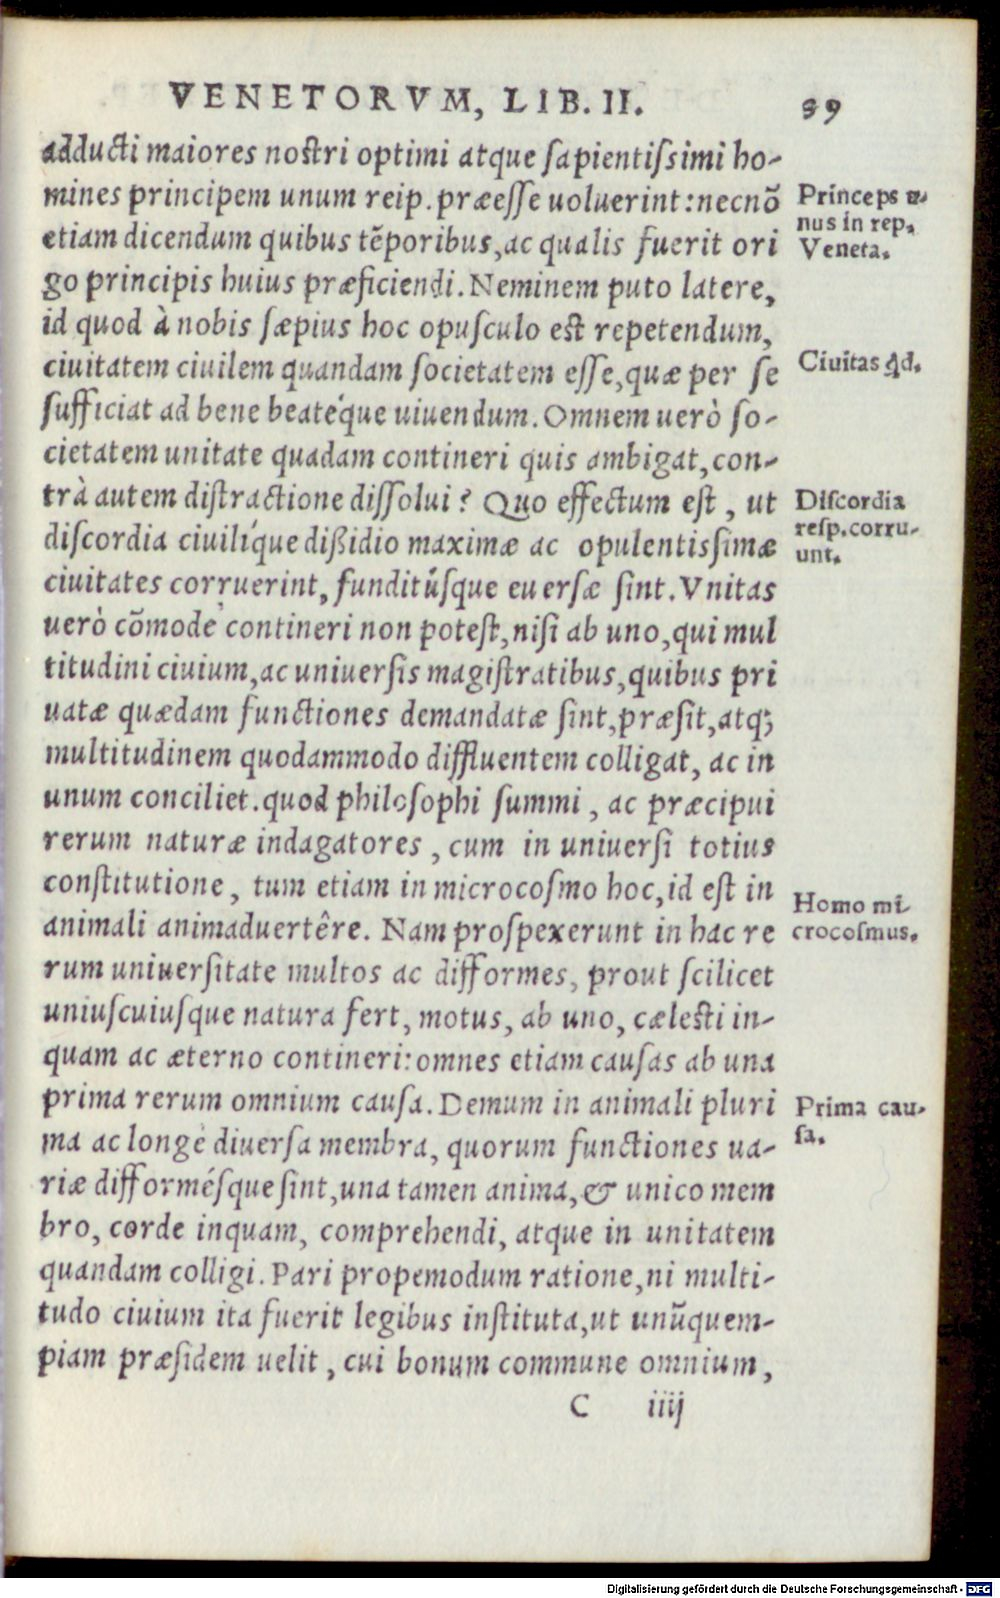 VENETORVM, LIB. II.
39
adducti maiores nostri optimi atque sapientissimi ho-
mines principem unum reip. præesse uoluerint: necnō
etiam dicendum quibus tēporibus, ac qualis fuerit ori
go principis huius præficiendi. Neminem puto latere,
id quod à nobis sæpius hoc opusculo est repetendum,
ciuitatem ciuilem quandam societatem esse, quæ per se
sufficiat ad bene beatéque uiuendum. Omnem uerò so-
cietatem unitate quadam contineri quis ambigat, con-
trà autem distractione dissolui? Quo effectum est, ut
discordia ciuilíque dißidio maximæ ac opulentissimæ
ciuitates corruerint, funditúsque euersæ sint. Vnitas
uerò cōmodè contineri non potest, nisi ab uno, qui mul
titudini ciuium, ac uniuersis magistratibus, quibus pri
uatæ quædam functiones demandatæ sint, præsit, atq;
multitudinem quodammodo diffluentem colligat, ac in
unum conciliet. quod philosophi summi, ac præcipui
rerum naturæ indagatores, cum in uniuersi totius
constitutione, tum etiam in microcosmo hoc, id est in
animali animaduertêre. Nam prospexerunt in hac re
rum uniuersitate multos ac difformes, prout scilicet
uniuscuiusque natura fert, motus, ab uno, cælesti in-
quam ac æterno contineri: omnes etiam causas ab una
prima rerum omnium causa. Demum in animali pluri
ma ac longè diuersa membra, quorum functiones ua-
riæ difformésque sint, una tamen anima, & unico mem
bro, corde inquam, comprehendi, atque in unitatem
quandam colligi. Pari propemodum ratione, ni multi-
tudo ciuium ita fuerit legibus instituta, ut unūquem-
piam præsidem uelit, cui bonum commune omnium,
C iiij
Princeps u-
nus in rep.
Veneta.
Ciuitas qd.
Discordia
resp. corru-
unt.
Homo mi-
crocosmus.
Prima cau-
sa.
Digitalisierung gefördert durch die Deutsche Forschungsgemeinschaft - DFG